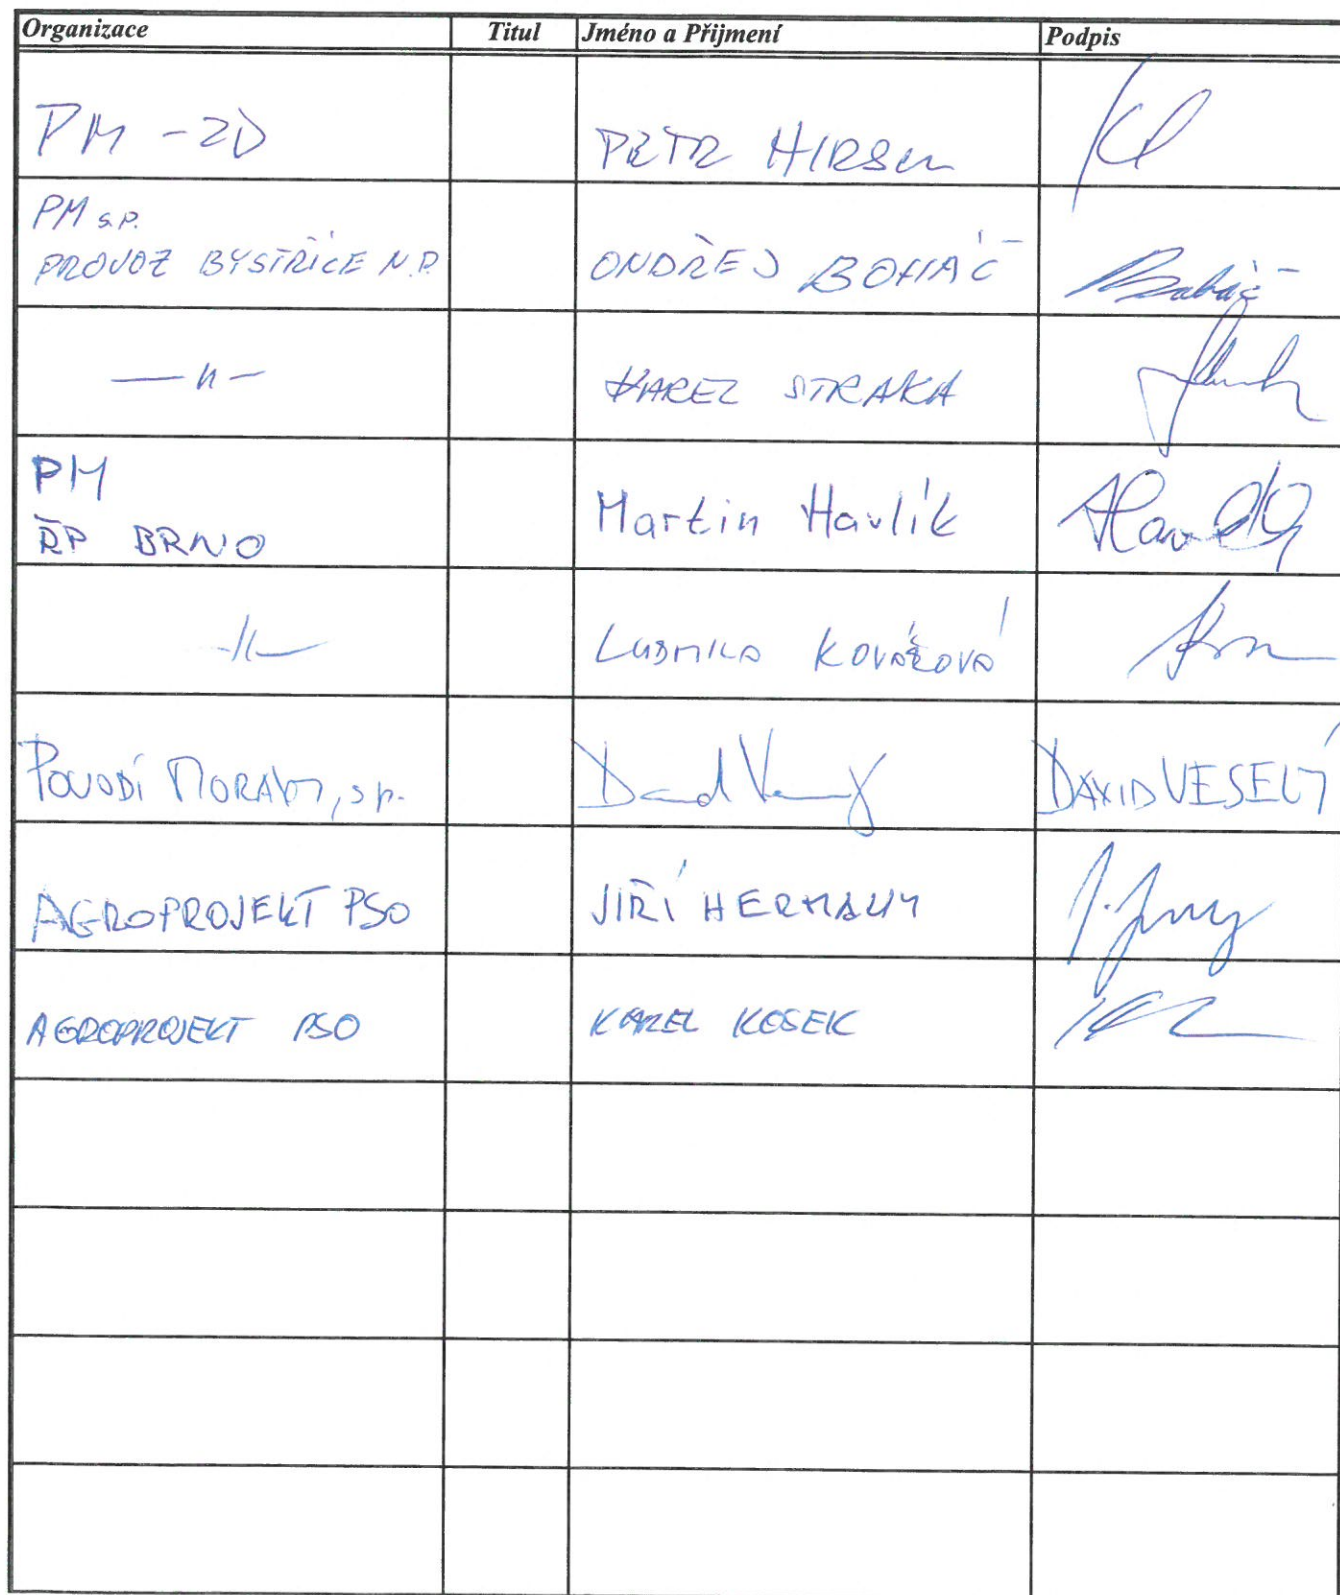 Organizace Titul Jméno a Přijmení Podpis
PM - ZD PETR HIRSCH
PM s.p.
PROVOZ BYSTŘICE N.P. ONDŘEJ BOHÁČ Boháč
— " — KAREL STRAKA
PM
ŘP BRNO Martin Havlík
— " — LUDMILA KOVÁŘOVÁ
POVODÍ MORAVY, s.p. DAVID VESELÝ
AGROPROJEKT PSO JIŘÍ HERMANY
AGROPROJEKT PSO KAREL KOSEK